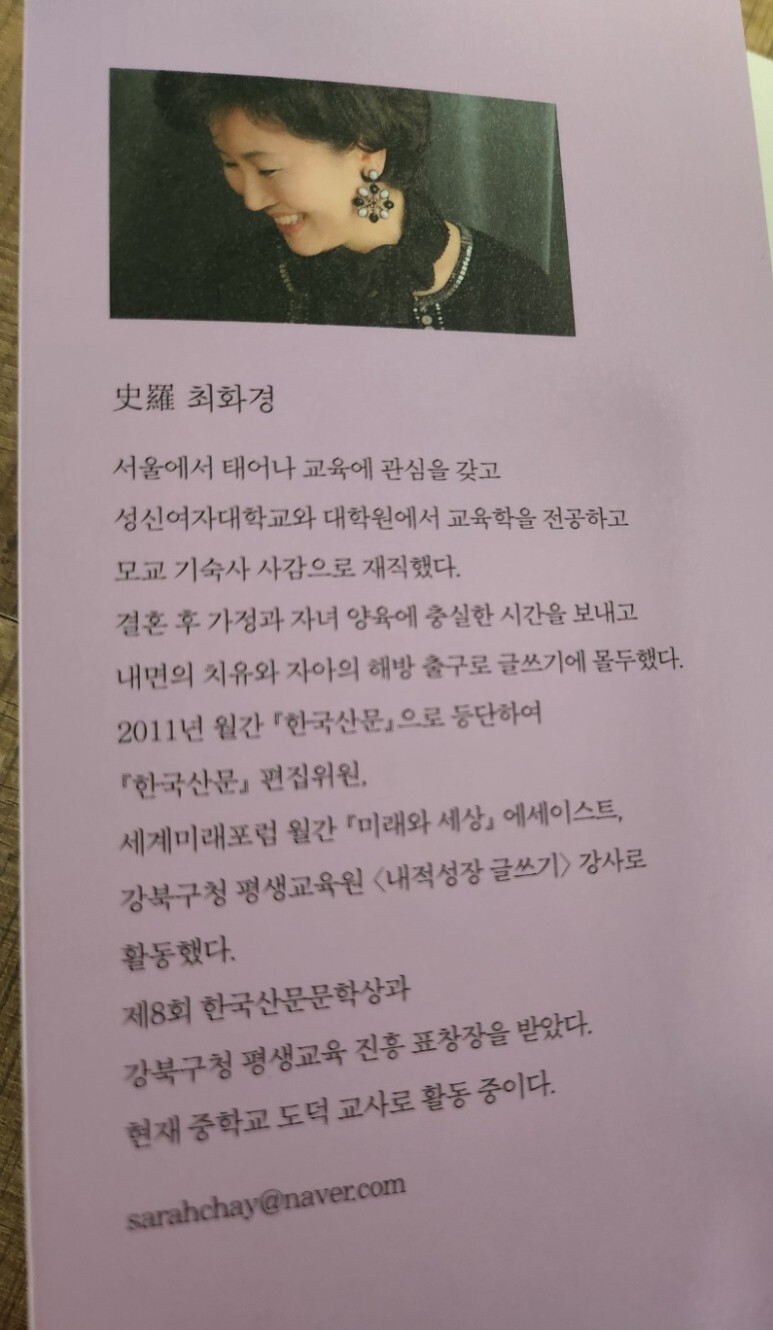 史羅 최화경
서울에서 태어나 교육에 관심을 갖고
성신여자대학교와 대학원에서 교육학을 전공하고
모교 기숙사 사감으로 재직했다.
결혼 후 가정과 자녀 양육에 충실한 시간을 보내고
내면의 치유와 자아의 해방 출구로 글쓰기에 몰두했다.
2011년 월간 『한국산문』으로 등단하여
『한국산문』 편집위원,
세계미래포럼 월간 『미래와 세상』 에세이스트,
강북구청 평생교육원 〈내적성장 글쓰기〉 강사로
활동했다.
제8회 한국산문문학상과
강북구청 평생교육 진흥 표창장을 받았다.
현재 중학교 도덕 교사로 활동 중이다.
sarahchay@naver.com